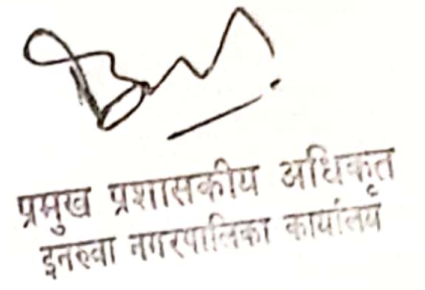 प्रमुख प्रशासकीय अधिकृत
इनरुवा नगरपालिका कार्यालय